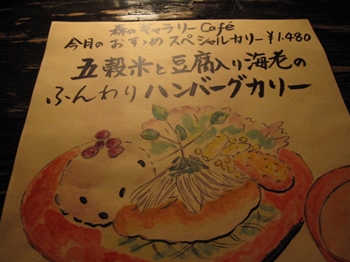 森のギャラリー Café
今月のおすすめ スペシャルカリー ¥1.480
五穀米と豆腐入り海老の
ふんわりハンバーグカリー